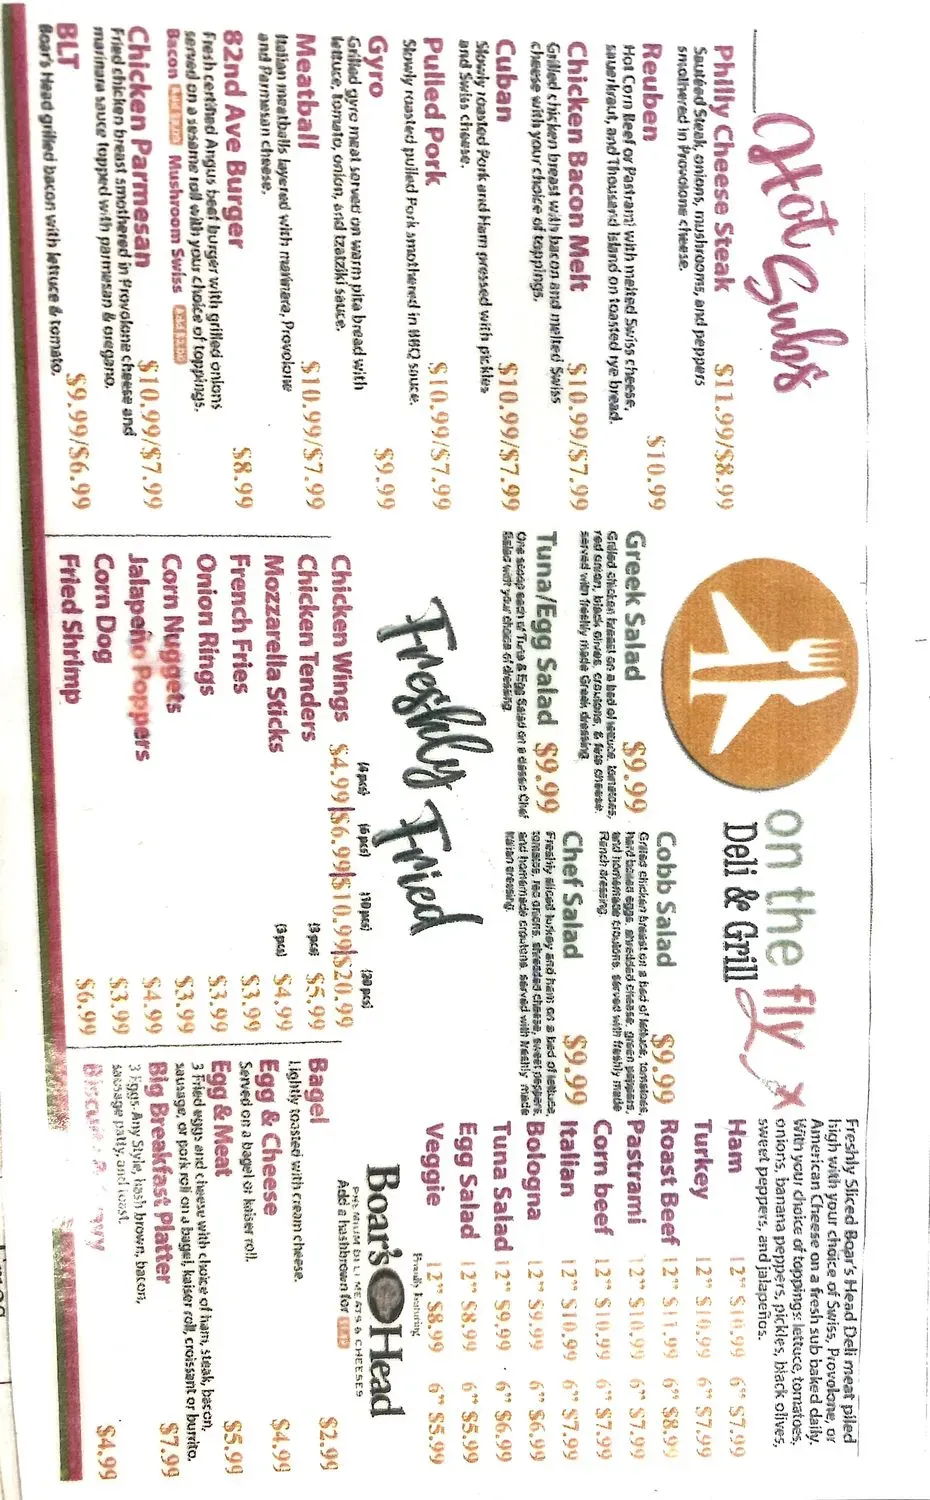 Hot Subs
Philly Cheese Steak $11.99/$8.99
Sautéed Steak, onions, mushrooms, and peppers
smothered in Provolone cheese.
Reuben $10.99
Hot Corn Beef or Pastrami with melted Swiss cheese,
sauerkraut, and Thousand Island on toasted rye bread.
Chicken Bacon Melt $10.99/$7.99
Grilled chicken breast with bacon and melted Swiss
cheese with your choice of toppings.
Cuban $10.99/$7.99
Slowly roasted Pork and Ham pressed with pickles
and Swiss cheese.
Pulled Pork $10.99/$7.99
Slowly roasted pulled Pork smothered in BBQ sauce.
Gyro $9.99
Grilled gyro meat served on warm pita bread with
lettuce, tomato, onion, and tzatziki sauce.
Meatball $10.99/$7.99
Italian meatballs layered with marinara, Provolone
and Parmesan cheese.
82nd Ave Burger $8.99
Fresh certified Angus beef burger with grilled onions
served on a sesame roll with your choice of toppings.
Bacon Add $2.00 Mushroom Swiss Add $2.00
Chicken Parmesan $10.99/$7.99
Fried chicken breast smothered in Provolone cheese and
marinara sauce topped with parmesan & oregano.
BLT $9.99/$6.99
Boar's Head grilled bacon with lettuce & tomato.
on the fly
Deli & Grill
Greek Salad $9.99
Grilled chicken breast on a bed of lettuce, tomatoes,
red onion, black olives, croutons, & feta cheese,
served with freshly made Greek dressing.
Tuna/Egg Salad $9.99
One scoop each of Tuna & Egg Salad on a classic Chef
Salad with your choice of dressing.
Cobb Salad $9.99
Grilled chicken breast on a bed of lettuce, tomatoes,
hard boiled eggs, shredded cheese, green peppers,
and homemade croutons, served with freshly made
Ranch dressing.
Chef Salad $9.99
Freshly sliced turkey and ham on a bed of lettuce,
tomatoes, red onions, shredded cheese, sweet peppers,
and homemade croutons, served with freshly made
Italian dressing.
Freshly Fried
(4 pcs) (6 pcs) (10 pcs) (20 pcs)
Chicken Wings $4.99|$6.99|$10.99|$20.99
Chicken Tenders (3 pcs) $5.99
Mozzarella Sticks (3 pcs) $4.99
French Fries $3.99
Onion Rings $3.99
Corn Nuggets $3.99
Jalapeño Poppers $4.99
Corn Dog $3.99
Fried Shrimp $6.99
Freshly Sliced Boar's Head Deli meat piled
high with your choice of Swiss, Provolone, or
American Cheese on a fresh sub baked daily.
With your choice of toppings: lettuce, tomatoes,
onions, banana peppers, pickles, black olives,
sweet peppers, and jalapeños.
Ham 12" $10.99 6" $7.99
Turkey 12" $10.99 6" $7.99
Roast Beef 12" $11.99 6" $8.99
Pastrami 12" $10.99 6" $7.99
Corn beef 12" $10.99 6" $7.99
Italian 12" $10.99 6" $7.99
Bologna 12" $9.99 6" $6.99
Tuna Salad 12" $9.99 6" $6.99
Egg Salad 12" $8.99 6" $5.99
Veggie 12" $8.99 6" $5.99
Proudly featuring
Boar's Head
PREMIUM DELI MEATS & CHEESES
Add a hashbrown for
Bagel $2.99
Lightly toasted with cream cheese.
Egg & Cheese $4.99
Served on a bagel or kaiser roll.
Egg & Meat $5.99
3 Fried eggs and cheese with choice of ham, steak, bacon,
sausage, or pork roll on a bagel, kaiser roll, croissant or burrito.
Big Breakfast Platter $7.99
3 Eggs, Any Style, hash brown, bacon,
sausage patty, and toast.
$4.99